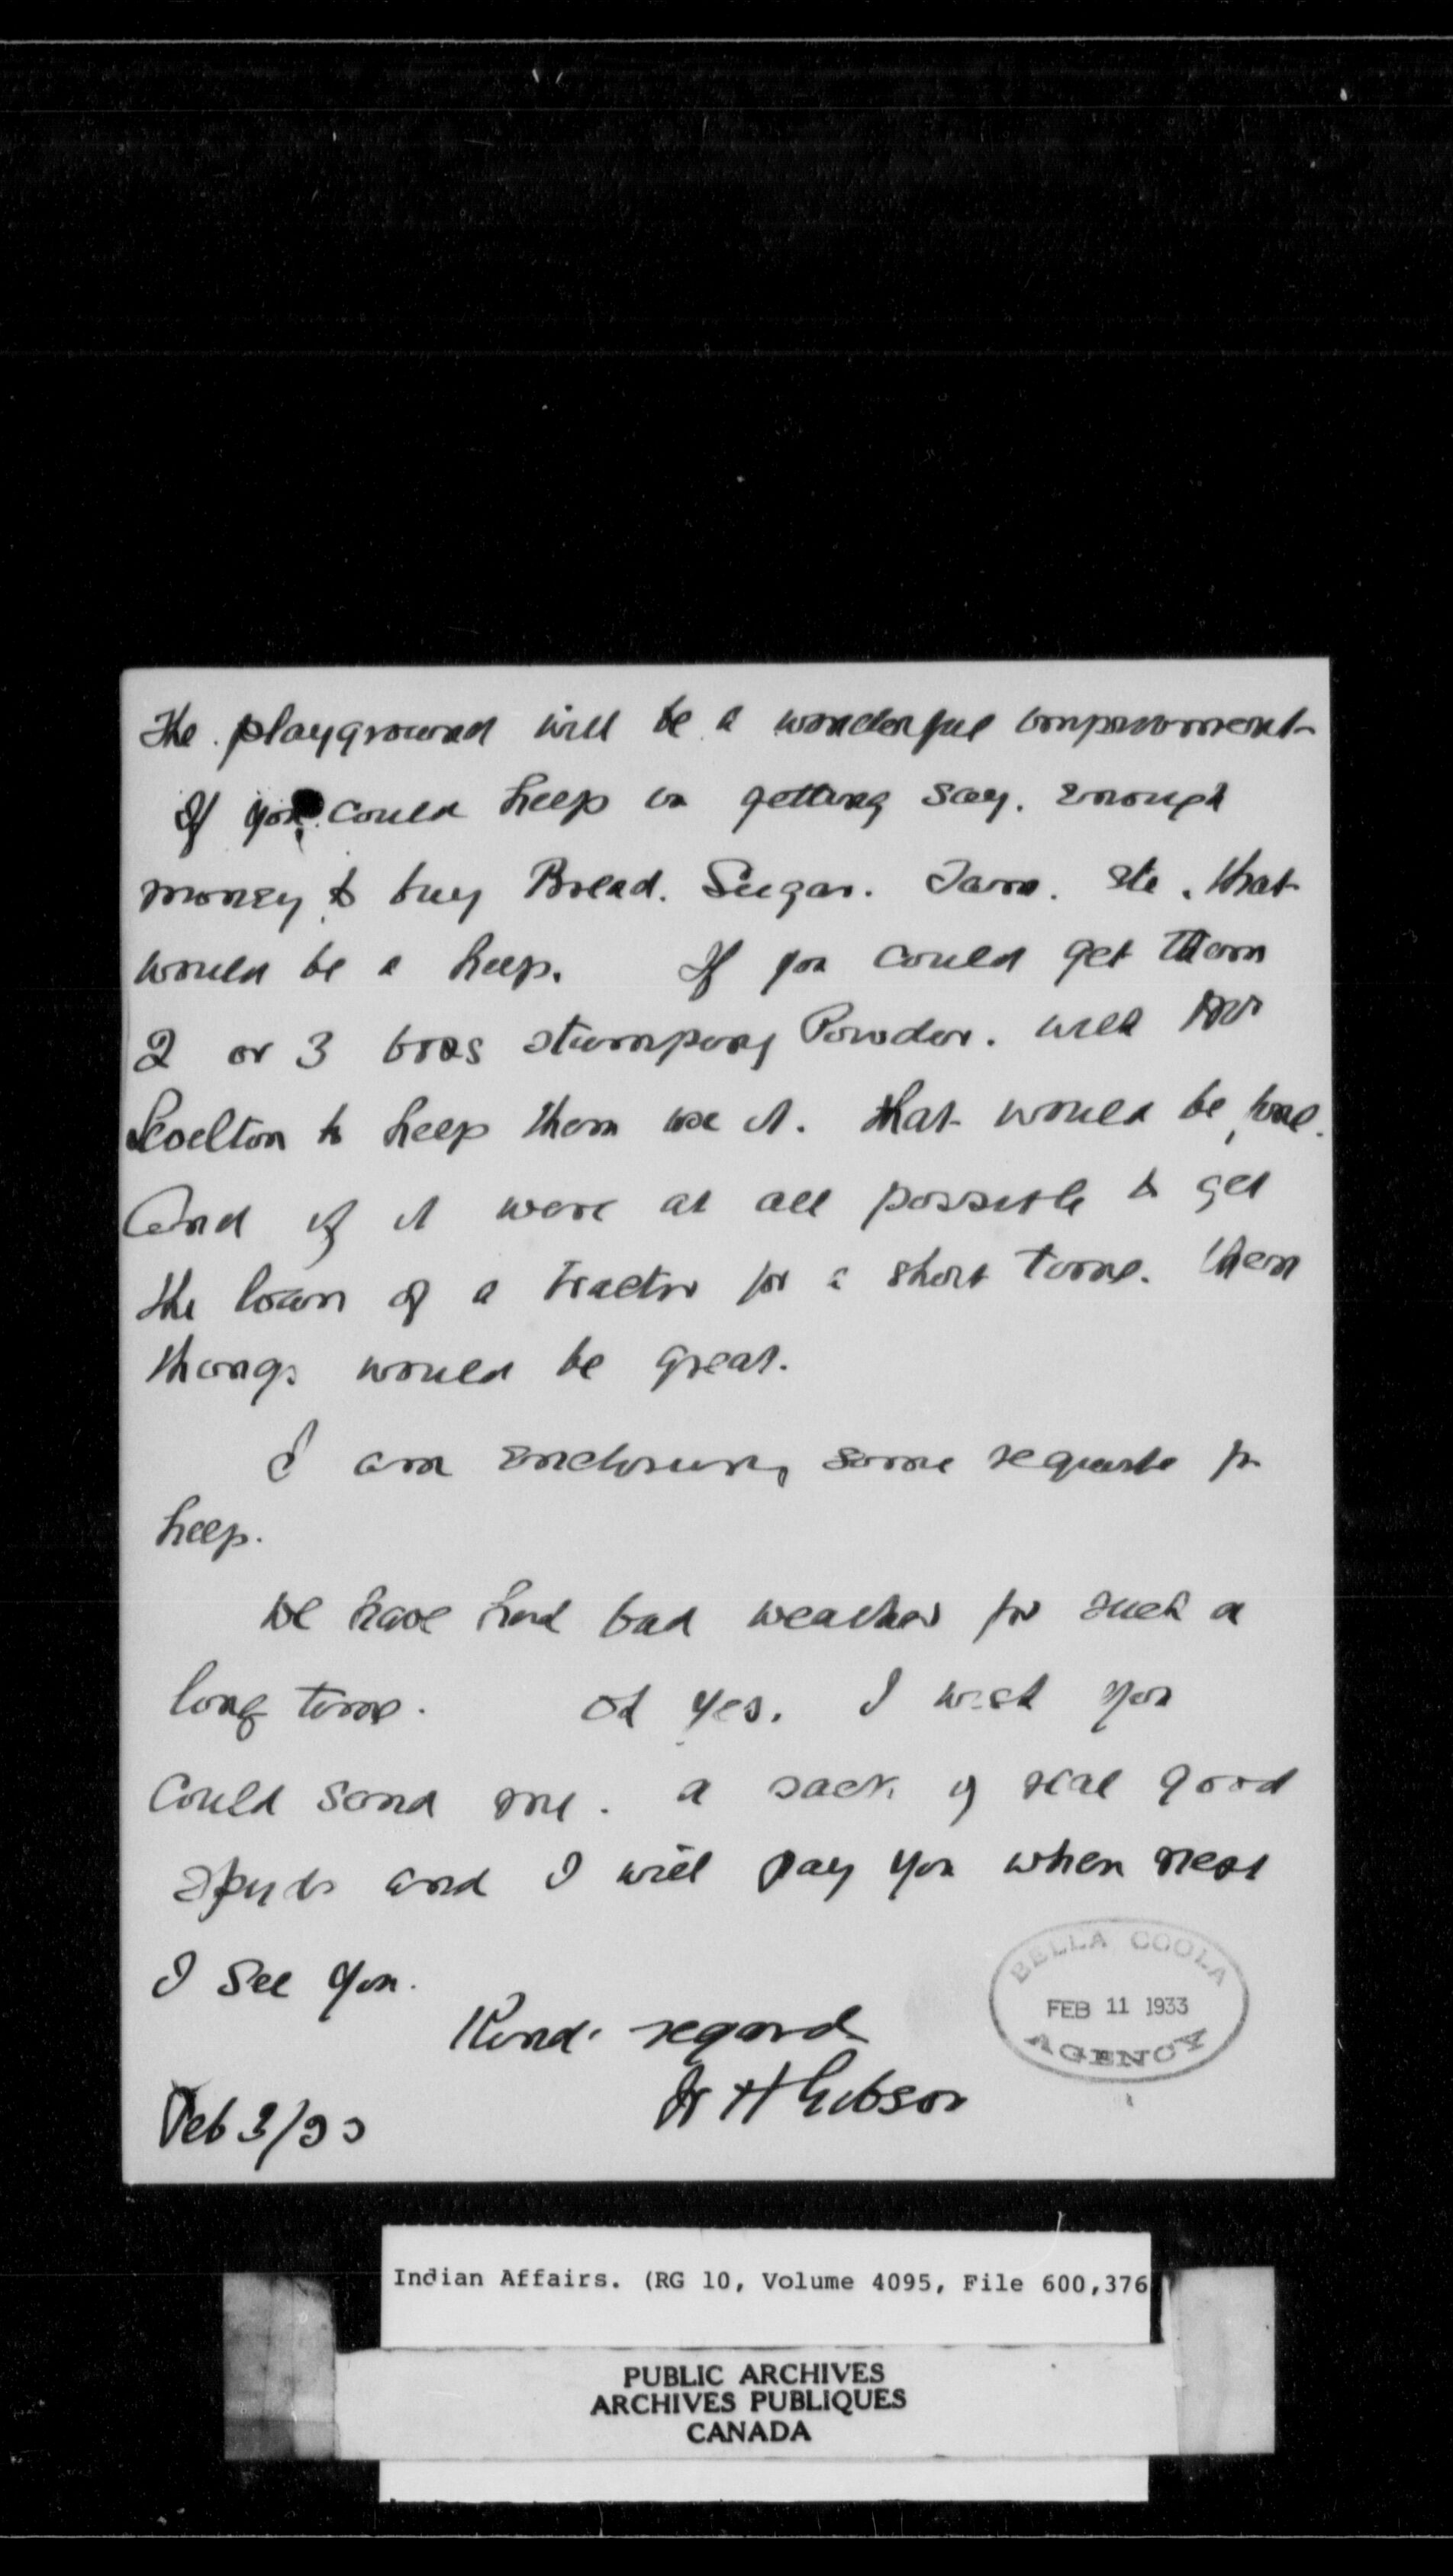 The playground will be a wonderful improvement
If you could help in getting say. enough
money to buy Bread. Sugar. Jam. etc. that
would be a help. If you could get them
2 or 3 boxs stumping Powder. with Mr
to help them use it. that would be fine.
And if it were at all possible to get
the loan of a tractor for a short time. then
things would be great.
I am enclosing some requests for
help.
We have had bad weather for such a
long time. Oh yes. I wish you
could send me. a sack of real good
spuds and I will pay you when next
I see you.
Kind regards
H Gibson
Feb 3/33
BELLA COOLA
FEB 11 1933
AGENCY
Indian Affairs. (RG 10, Volume 4095, File 600,376
PUBLIC ARCHIVES
ARCHIVES PUBLIQUES
CANADA